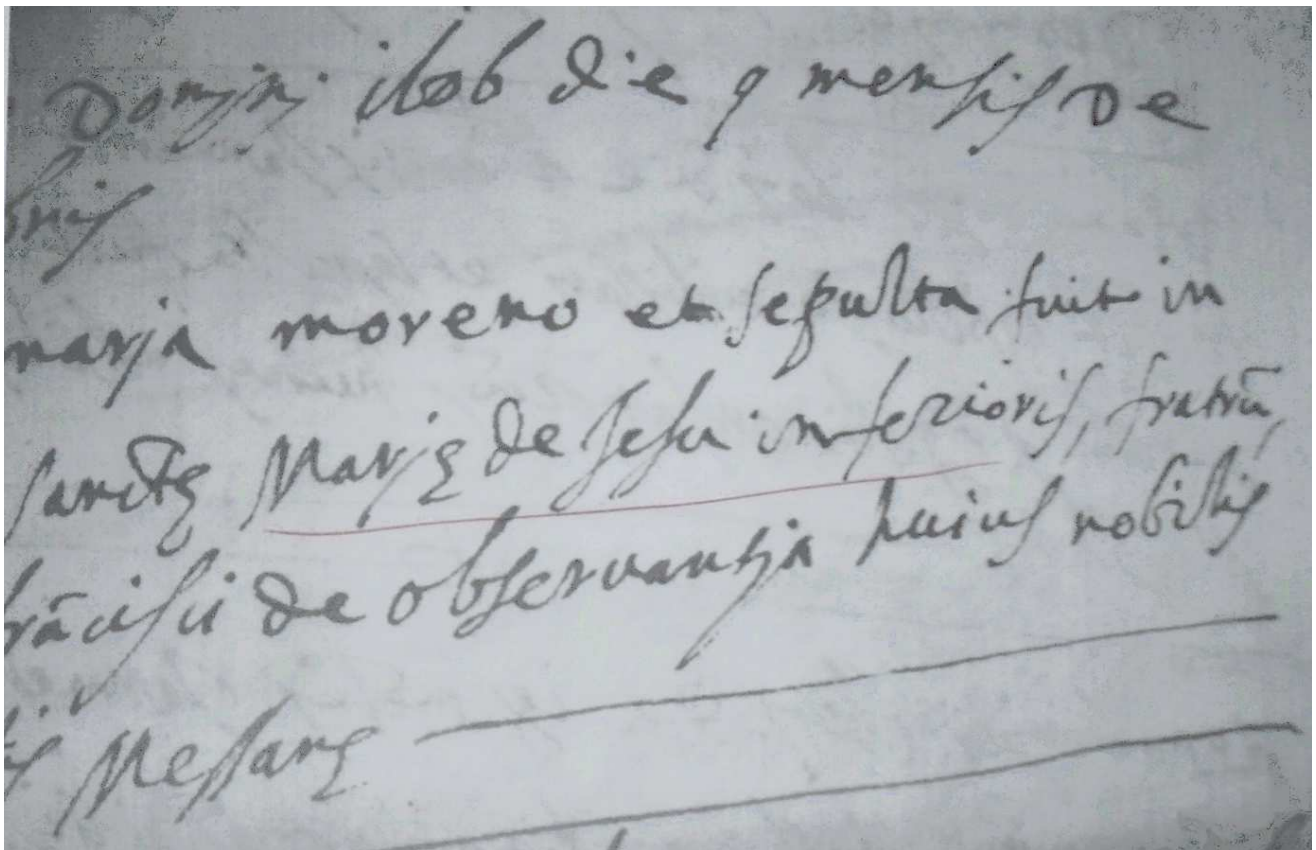 Dominj 1606 die 9 mensis De
bris
maria moreno et sepulta fuit in
sanctę Marię de Jesu inferioris, fratrū
frācisci de observantia huius nobilis
Messanę